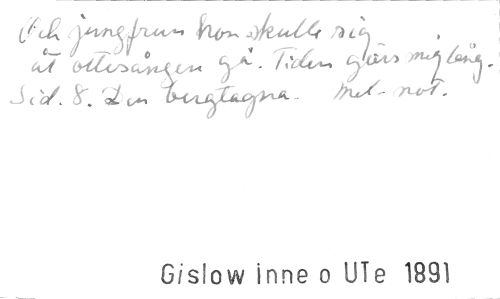 Och jungfrun hon skulle sig
åt ottesången gå. Tiden görs mig lång.
Sid. 8. Den bergtagna. Mel-not.
Gislow inne o UTe 1891